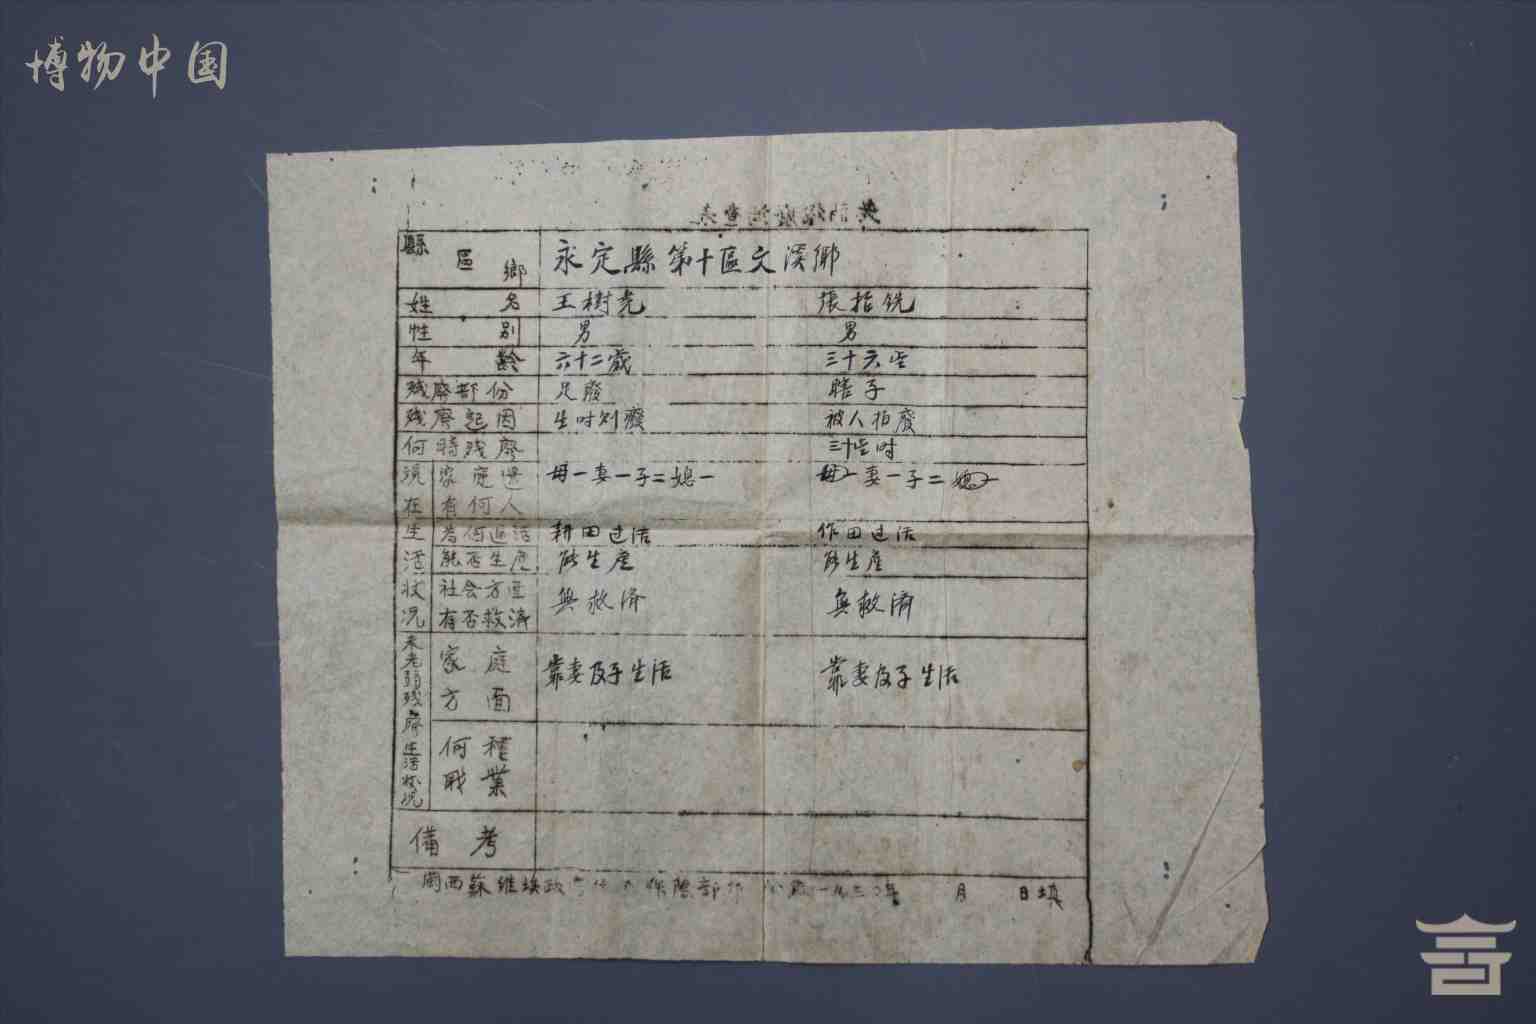 博物中国
縣 區 鄉 永定縣第十區文溪鄉
姓名 王樹 張
性別 男 男
年齡 六十二歲 三十六
残廢部份 足廢 瞎子
残廢起因 生时 廢 被人 廢
何時残廢 三十 时
現在生活状况
家庭 有何人 母一妻一子二媳一 妻一子二
為何過活 耕田过活 作田过活
能否生產 能生產 能生產
社会方面有否救濟 無救济 無救濟
未老弱残廢生活状况
家庭方面 靠妻及子生活 靠妻及子生活
何種職業
備考
閩西蘇維埃政 部 一九三〇年 月 日填